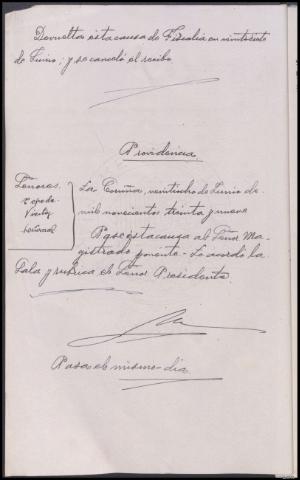 Devuelta esta causa de Fiscalia en veintisiete
de Junio; y se canceló el recibo
Providencia
Señores.
La Coruña, veintiocho de Junio de
mil novecientos treinta y nueve
Pase esta causa al Señor Ma-
gistrado ponente. Lo acordó la
Sala y rubrica el Señor Presidente.
Pasa el mismo dia.